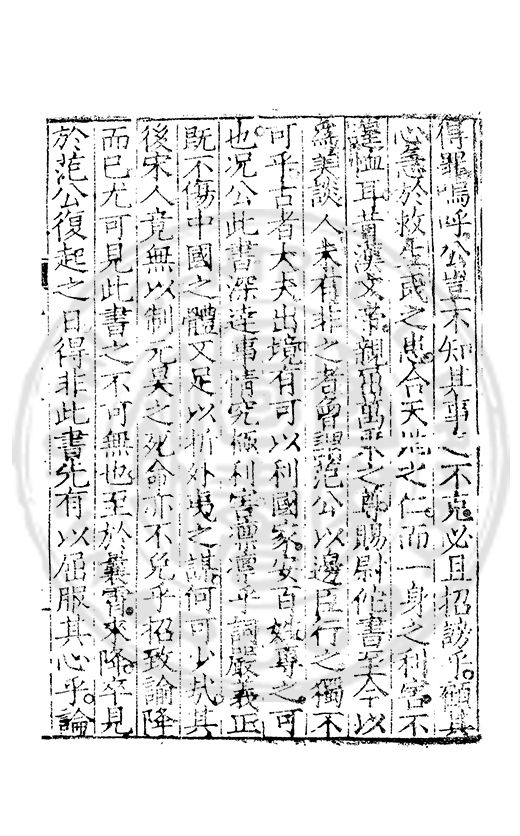 得罪嗚呼公豈不知其事之不克必且招謗乎顧其
心急於救生或之患合天地之仁而一身之利害不
遑恤耳昔漢文帝親屈萬乘之尊賜尉佗書至今以
為美談人未有非之者曾謂范公以邊臣行之獨不
可乎古者大夫出境有可以利國家安百姓專之可
也况公此書深達事情究極利害凛凛乎詞嚴義正
既不傷中國之體又足以折外夷之謀何可少哉其
後宋人竟無以制元昊之死命亦不免乎招致諭降
而已尤可見此書之不可無也至於曩霄來降卒見
於范公復起之日得非此書先有以屈服其心乎論